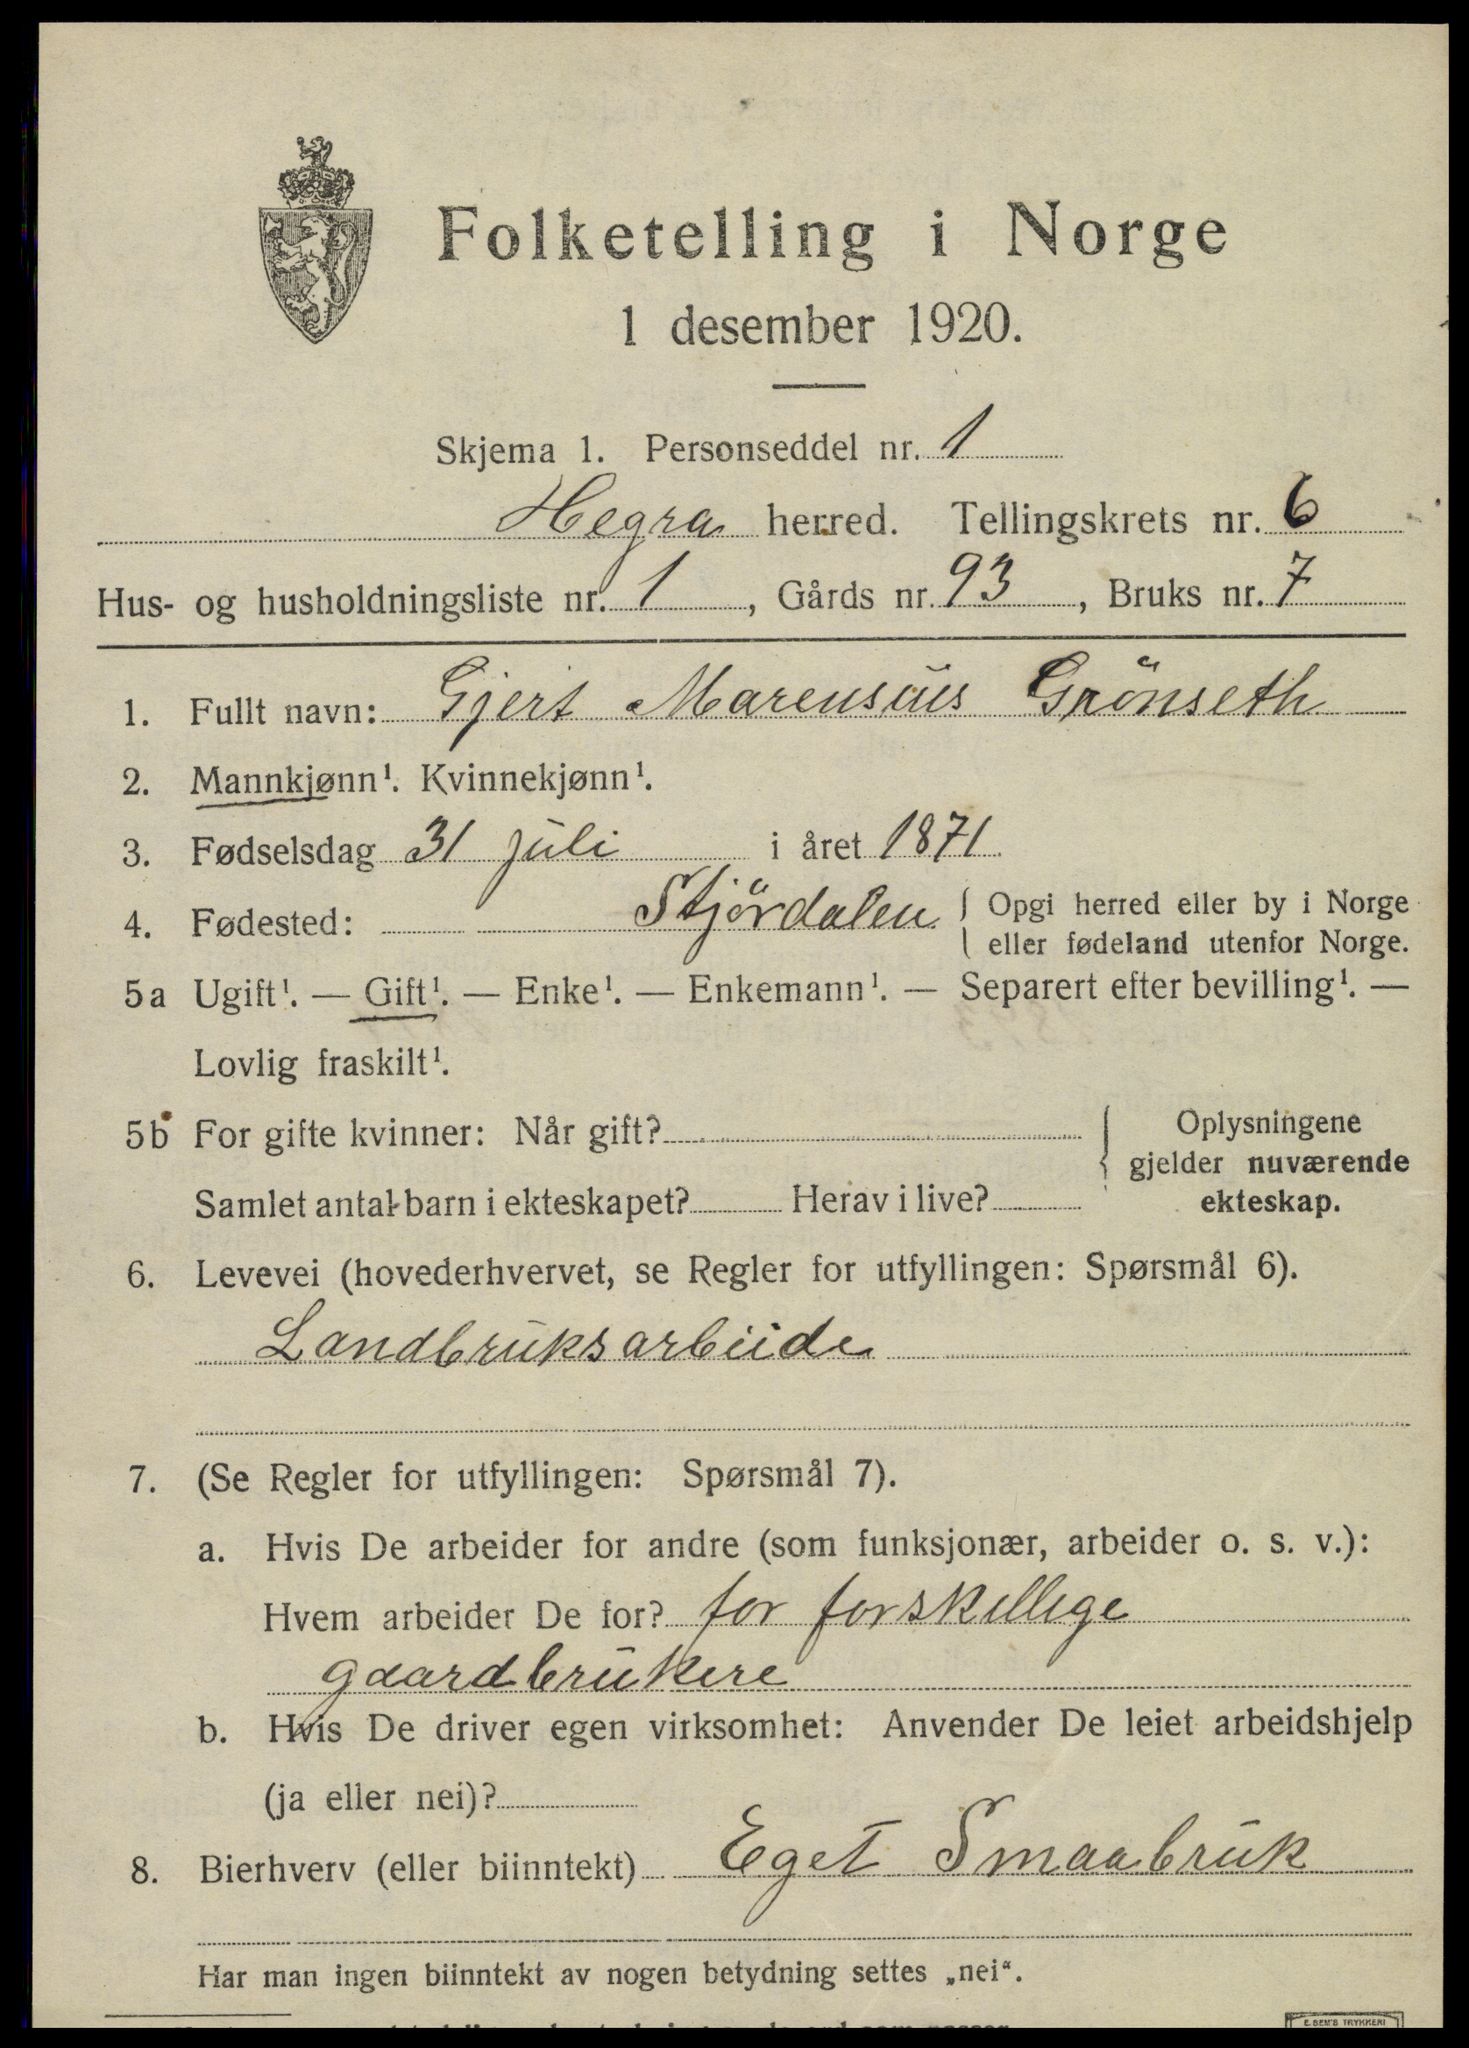 Folketelling i Norge
1 desember 1920.
Skjema 1. Personseddel nr. 1
Hegra herred. Tellingskrets nr. 6
Hus- og husholdningsliste nr. 1, Gårds nr. 93, Bruks nr. 7
1. Fullt navn: Gjert Marensius Grönseth
2. Mannkjønn¹. Kvinnekjønn¹.
3. Fødselsdag 31 juli i året 1871
4. Fødested: Stjördalen { Opgi herred eller by i Norge
eller fødeland utenfor Norge.
5a Ugift¹. — Gift¹. — Enke¹. — Enkemann¹. — Separert efter bevilling¹. —
Lovlig fraskilt¹.
5b For gifte kvinner: Når gift? { Oplysningene
gjelder nuværende
Samlet antal barn i ekteskapet? Herav i live? ekteskap.
6. Levevei (hovederhvervet, se Regler for utfyllingen: Spørsmål 6).
Landbruksarbeide
7. (Se Regler for utfyllingen: Spørsmål 7).
a. Hvis De arbeider for andre (som funksjonær, arbeider o. s. v.):
Hvem arbeider De for? for forskellige
gaardbrukere
b. Hvis De driver egen virksomhet: Anvender De leiet arbeidshjelp
(ja eller nei)?
8. Bierhverv (eller biinntekt) Eget Smaabruk
Har man ingen biinntekt av nogen betydning settes „nei“.
E. SEM'S TRYKKERI